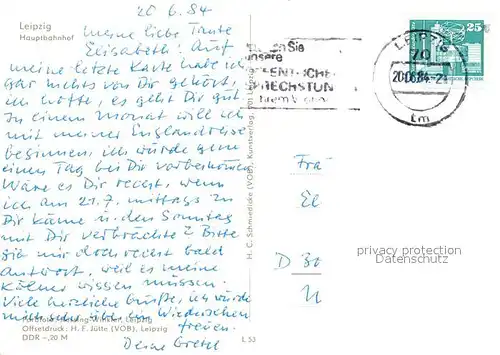 20.6.84
Leipzig
Hauptbahnhof
Meine liebe Tante
Elisabeth! Auf
meine letzte Karte habe ich
gar nichts von Dir gehört,
ich hoffe, es geht Dir gut.
In einem Monat will ich
mit meiner Englandreise
beginnen, ich würde gern
einen Tag bei Dir vorbeikommen
Wäre es Dir recht, wenn
ich am 21.7. mittags zu
Dir käme u. den Sonntag
mit Dir verbrächte? Bitte
gib mir doch recht bald
Antwort, weil es meine
Kölner wissen müssen.
Viele herzliche Grüße, ich würde
mich sehr über ein Wiedersehen
freuen.
Deine Gretel
Offsetdruck: H. F. Jütte (VOB), Leipzig
DDR –,20 M
L 53
H. C. Schmiedicke (VOB), Kunstverlag, 701 Leipzig
en Sie
unsere
ÖFFENTLICHE
SPRECHSTUN
LEIPZIG
70
20.06.84
tm
25
Fra
El
D 80
privacy protection
Datenschutz